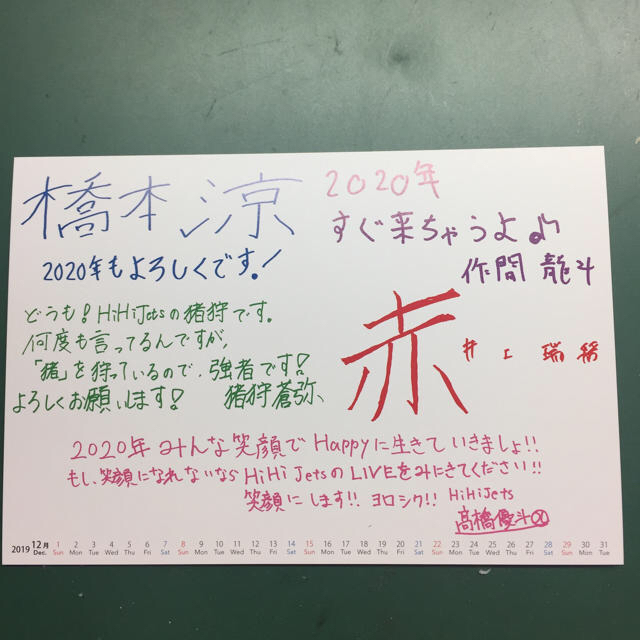 橋本涼
2020年もよろしくです!
2020年
すぐ来ちゃうよ♪
作間 龍斗
どうも!HiHiJetsの猪狩です。
何度も言ってるんですが、
「猪」を狩っているので、強者です!
よろしくお願いします! 猪狩蒼弥
赤
井上 瑞稀
2020年 みんな笑顔で Happyに生きていきましょ!!
もし、笑顔になれないなら HiHi JetsのLIVEをみにきてください!!
笑顔にします!! ヨロシク!! HiHiJets
髙橋優斗
2019 12月 Dec.
1 2 3 4 5 6 7 8 9 10 11 12 13 14 15 16 17 18 19 20 21 22 23 24 25 26 27 28 29 30 31
Sun Mon Tue Wed Thu Fri Sat Sun Mon Tue Wed Thu Fri Sat Sun Mon Tue Wed Thu Fri Sat Sun Mon Tue Wed Thu Fri Sat Sun Mon Tue